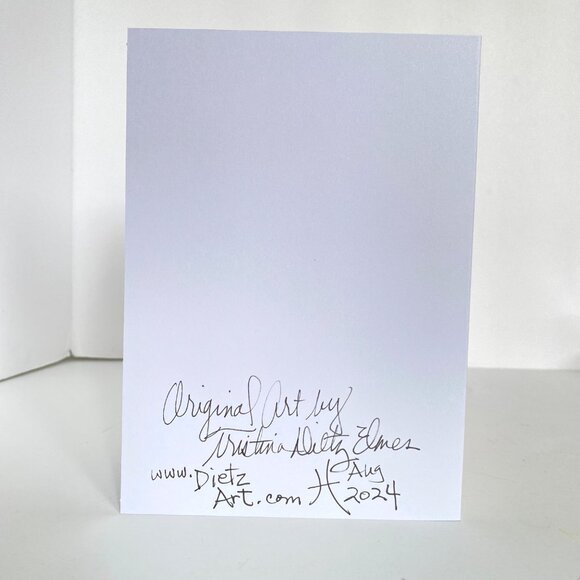 Original Art by
Tristina Dietz Elmes
www.Dietz Aug
Art.com 2024